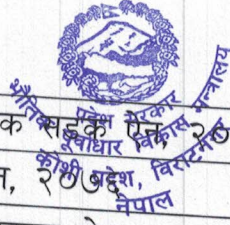 प्रदेश सरकार
भौतिक पूर्वाधार विकास मन्त्रालय
कोशी प्रदेश, विराटनगर
नेपाल
क सडक ऐन, २०
न, २०७६